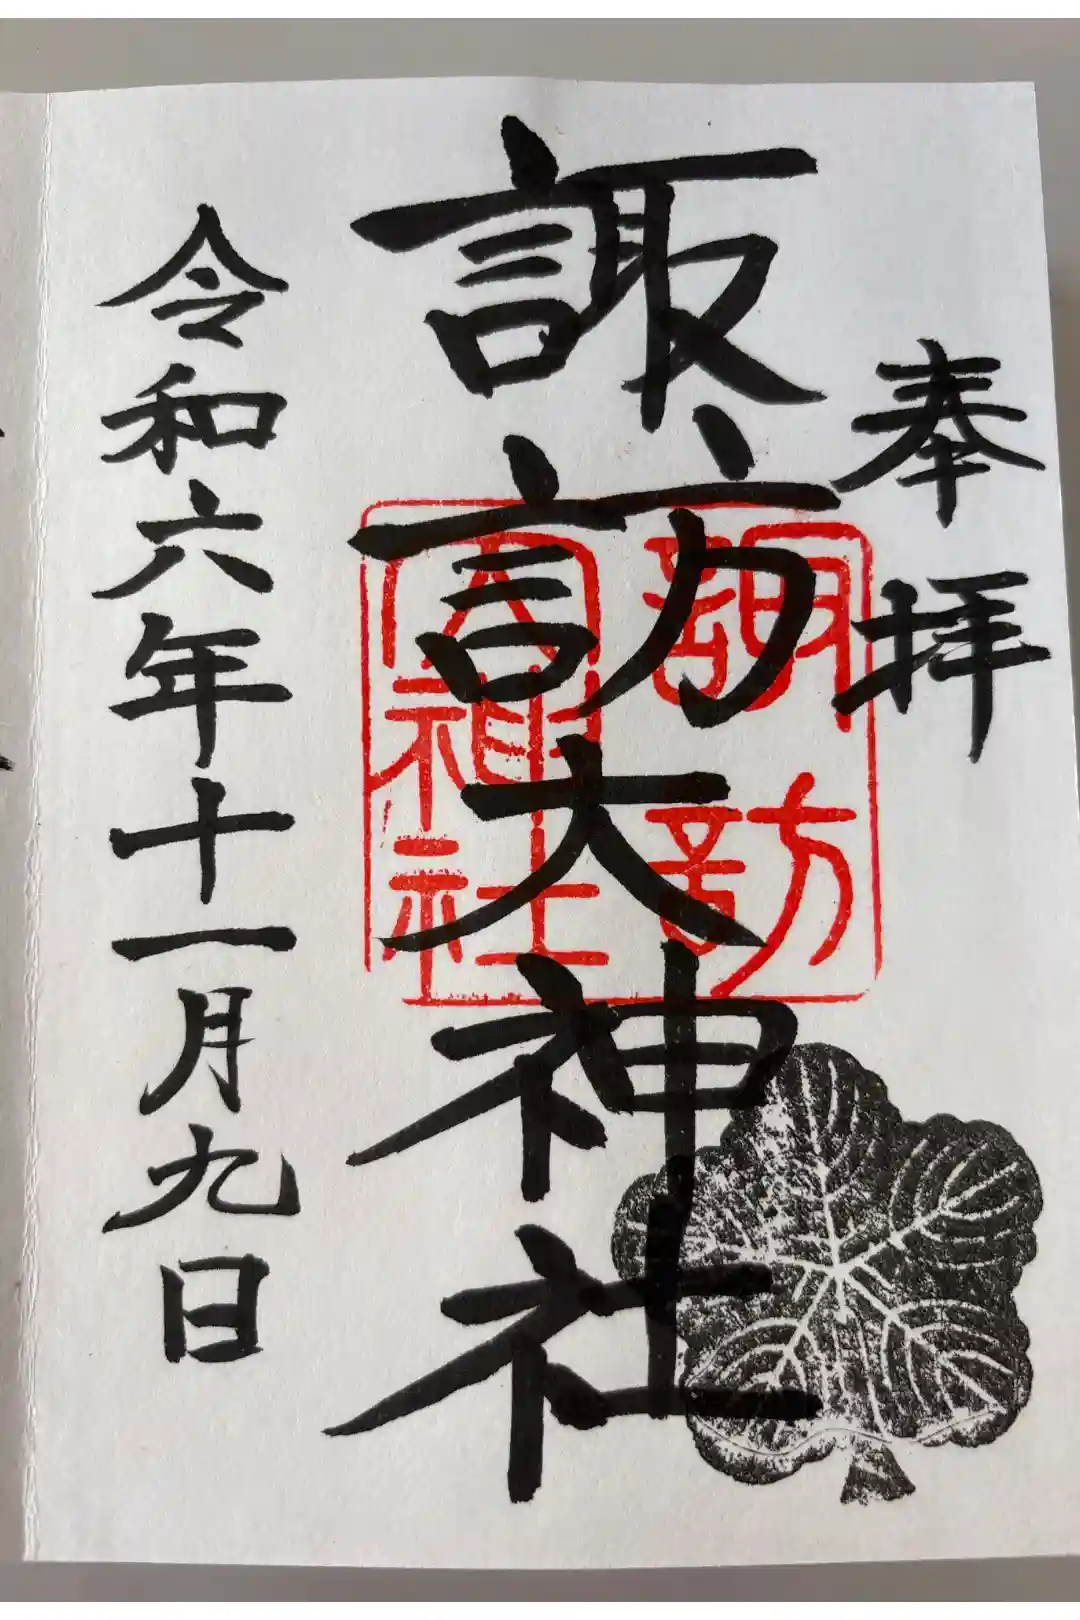 奉拝
諏訪大神社
諏訪
大神社
令和六年十一月九日